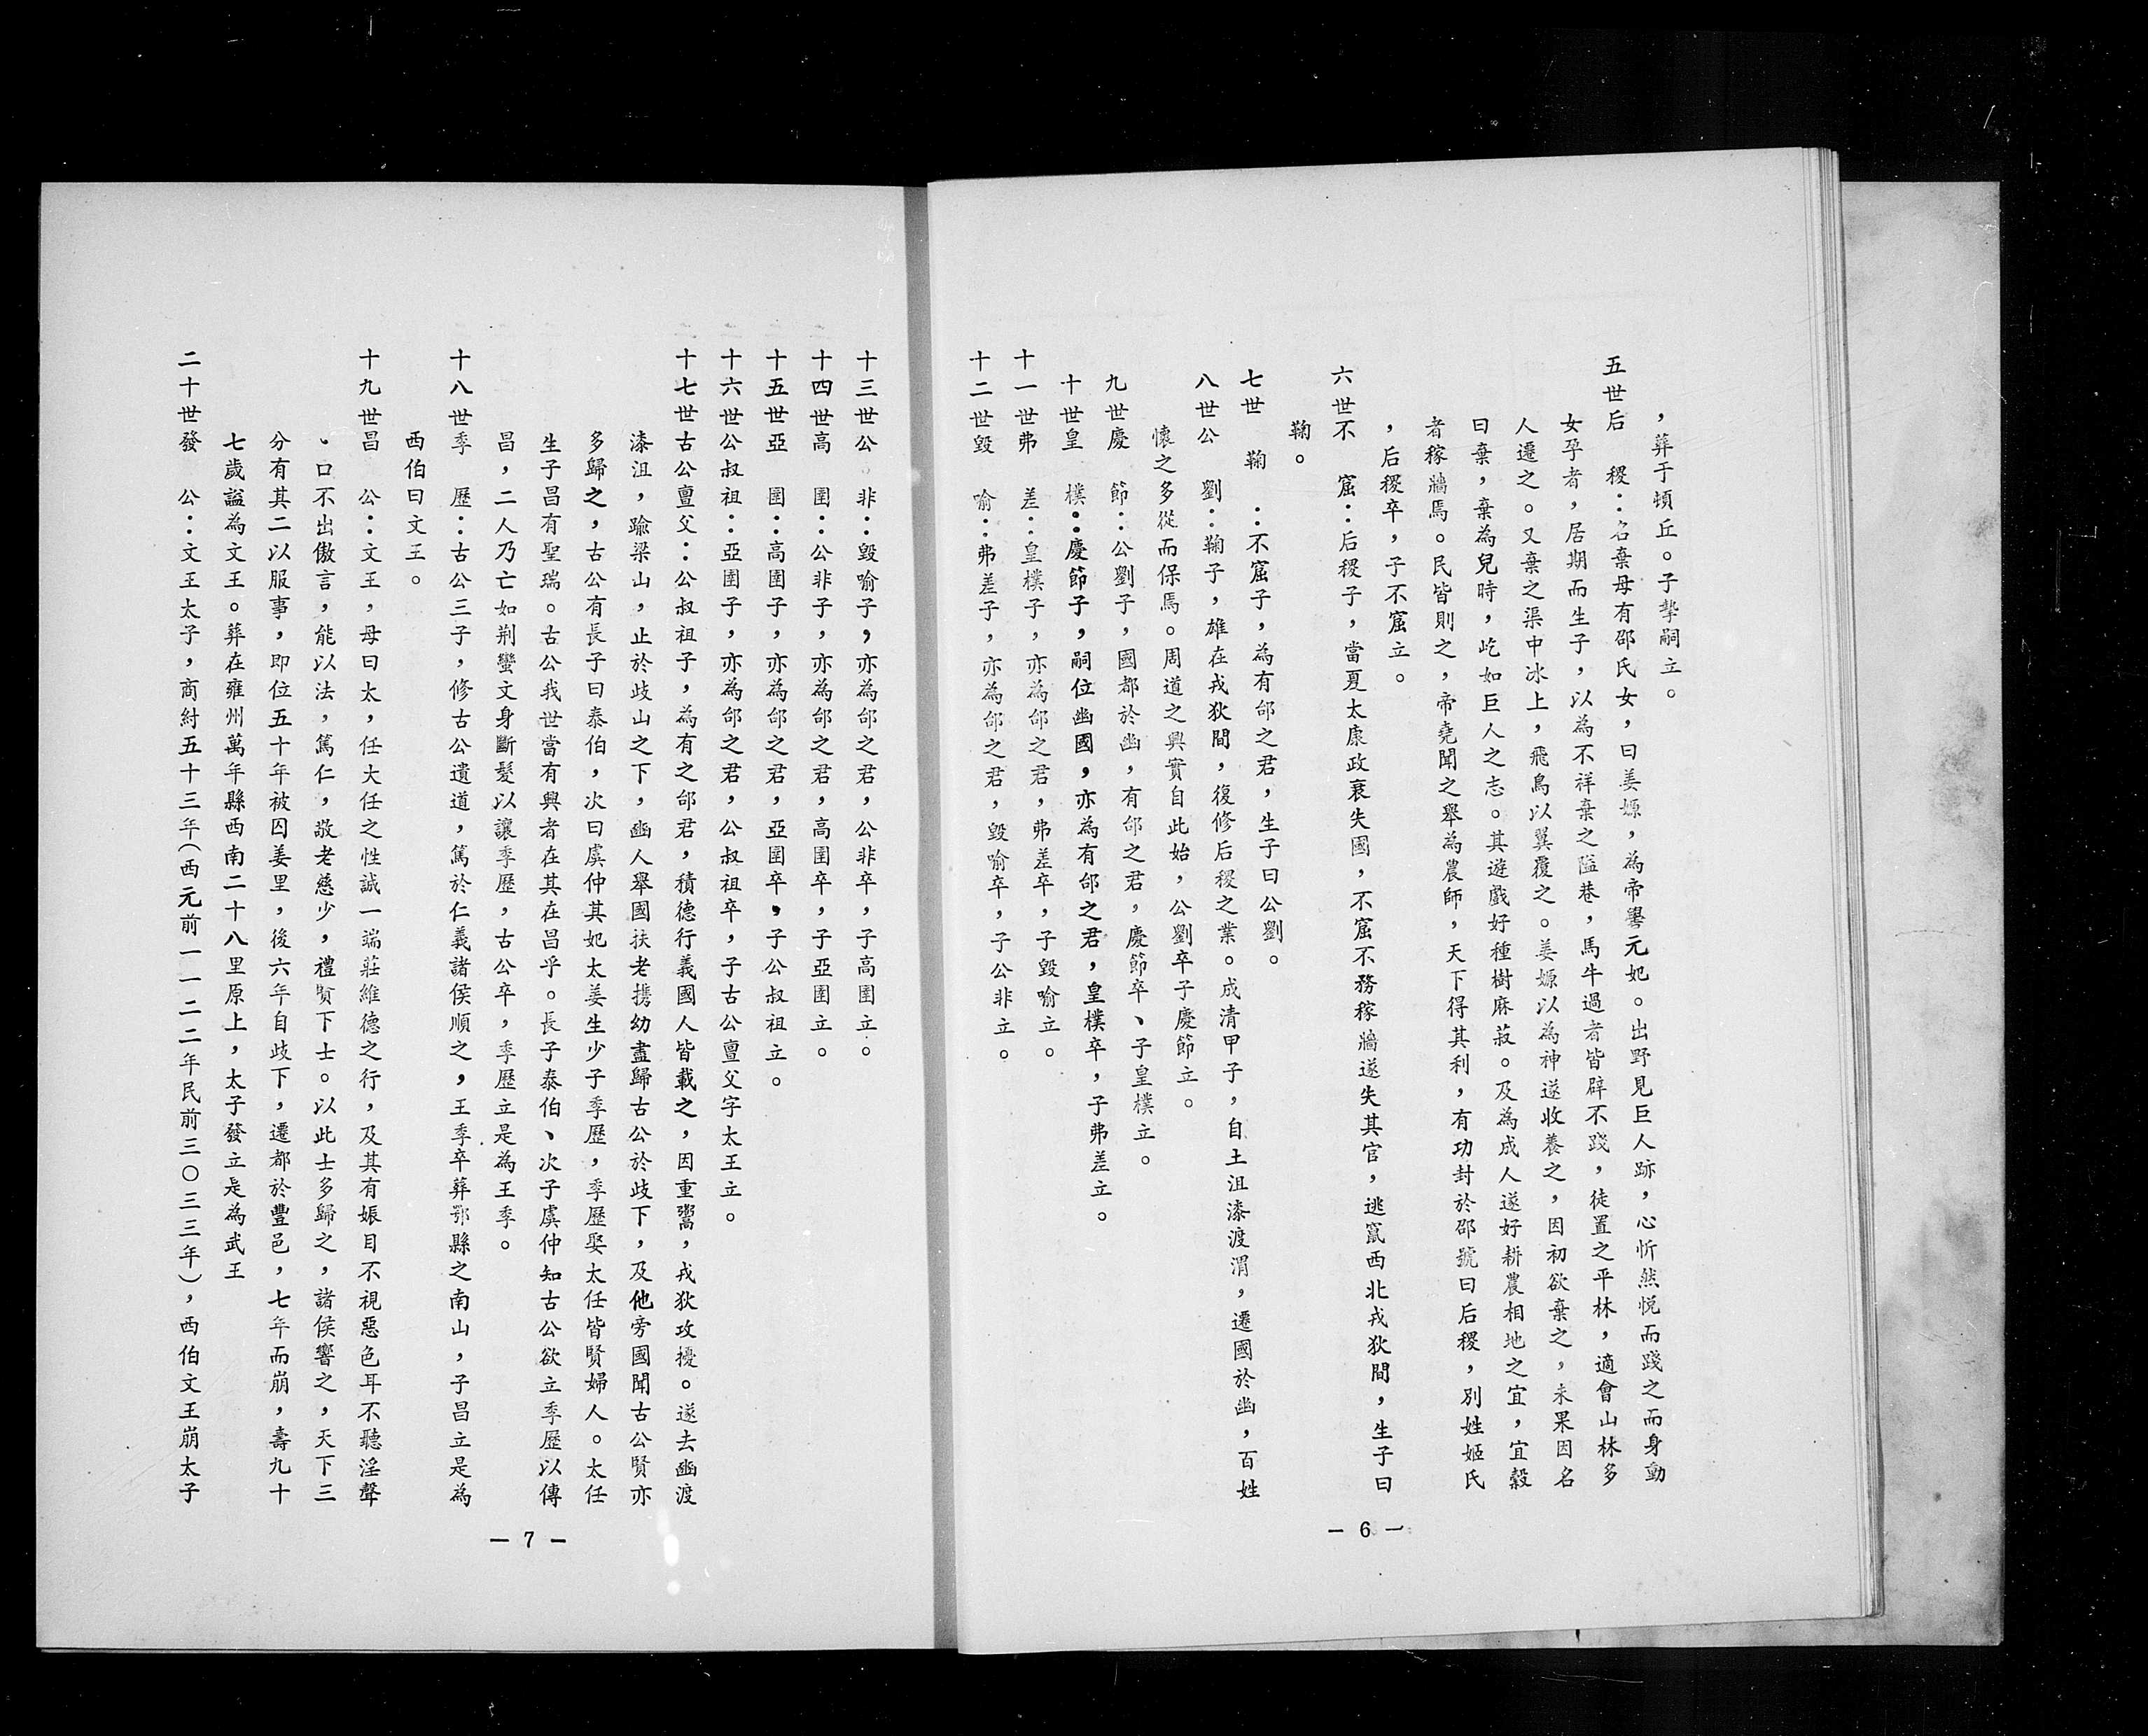 ，葬于頓丘。子摯嗣立。
五世后　稷：名棄母有邵氏女，曰姜嫄，為帝嚳元妃。出野見巨人跡，心忻然悅而踐之而身動
女孕者，居期而生子，以為不祥棄之隘巷，馬牛過者皆辟不踐，徒置之平林，適會山林多
人遷之。又棄之渠中冰上，飛鳥以翼覆之。姜嫄以為神遂收養之，因初欲棄之，未果因名
曰棄，棄為兒時，屹如巨人之志。其遊戲好種樹麻菽。及為成人遂好耕農相地之宜，宜穀
者稼牆焉。民皆則之，帝堯聞之舉為農師，天下得其利，有功封於邵號曰后稷，別姓姬氏
，后稷卒，子不窟立。
六世不　窟：后稷子，當夏太康政衰失國，不窟不務稼牆遂失其官，逃竄西北戎狄間，生子曰
鞠。
七世　鞠　：不窟子，為有邰之君，生子曰公劉。
八世公　劉：鞠子，雄在戎狄間，復修后稷之業。成清甲子，自土沮漆渡渭，遷國於豳，百姓
懷之多從而保焉。周道之興實自此始，公劉卒子慶節立。
九世慶　節：公劉子，國都於豳，有邰之君，慶節卒、子皇樸立。
十世皇　樸：慶節子，嗣位豳國，亦為有邰之君，皇樸卒，子弗差立。
十一世弗　差：皇樸子，亦為邰之君，弗差卒，子毀喻立。
十二世毀　喻：弗差子，亦為邰之君，毀喻卒，子公非立。
— 6 —
十三世公　非：毀喻子，亦為邰之君，公非卒，子高圉立。
十四世高　圉：公非子，亦為邰之君，高圉卒，子亞圉立。
十五世亞　圉：高圉子，亦為邰之君，亞圉卒，子公叔祖立。
十六世公叔祖：亞圉子，亦為邰之君，公叔祖卒，子古公亶父字太王立。
十七世古公亶父：公叔祖子，為有之邰君，積德行義國人皆載之，因重鬻，戎狄攻擾。遂去豳渡
漆沮，踰梁山，止於歧山之下，豳人舉國扶老攜幼盡歸古公於歧下，及他旁國聞古公賢亦
多歸之，古公有長子曰泰伯，次曰虞仲其妃太姜生少子季歷，季歷娶太任皆賢婦人。太任
生子昌有聖瑞。古公我世當有興者在其在昌乎。長子泰伯、次子虞仲知古公欲立季歷以傳
昌，二人乃亡如荆蠻文身斷髮以讓季歷，古公卒，季歷立是為王季。
十八世季　歷：古公三子，修古公遺道，篤於仁義諸侯順之，王季卒葬鄂縣之南山，子昌立是為
西伯曰文王。
十九世昌　公：文王，母曰太，任大任之性誠一端莊維德之行，及其有娠目不視惡色耳不聽淫聲
，口不出傲言，能以法，篤仁，敬老慈少，禮賢下士。以此士多歸之，諸侯響之，天下三
分有其二以服事，即位五十年被囚姜里，後六年自歧下，遷都於豐邑，七年而崩，壽九十
七歲謚為文王。葬在雍州萬年縣西南二十八里原上，太子發立是為武王
二十世發　公：文王太子，商紂五十三年（西元前一一二二年民前三〇三三年），西伯文王崩太子
— 7 —